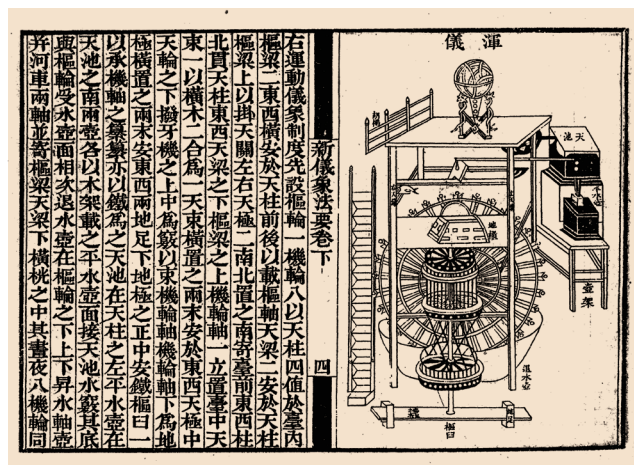 渾儀
天池
平水壺
壺架
退水壺
地足
地極
樞臼
新儀象法要卷下
四
右運動儀象制度先設樞輪一機輪八以天柱四值於臺內
樞梁二東西橫安於天柱前後以載樞軸天梁二安於天柱
樞梁上以掛天關左右天極二南北置之南寄臺前東西柱
北貫天柱東西天梁之下樞梁之上機輪軸一立置臺中天
東一以橫木二合為一天束橫置之兩末安於東西天極中
天輪之下撥牙機之上中為竅以束機輪軸機輪軸下為地
極橫置之兩末安東西兩地足下地極之正中安鐵樞臼一
以承機軸之纂纂亦以鐵為之天池在天柱之左平水壺在
天池之南兩壺各以木架載之平水壺面接天池水竅其底
與樞輪受水壺面相次退水壺在樞輪之下上下昇水軸壺
并河車兩軸並寄樞梁天梁下橫桄之中其晝夜八機輪同